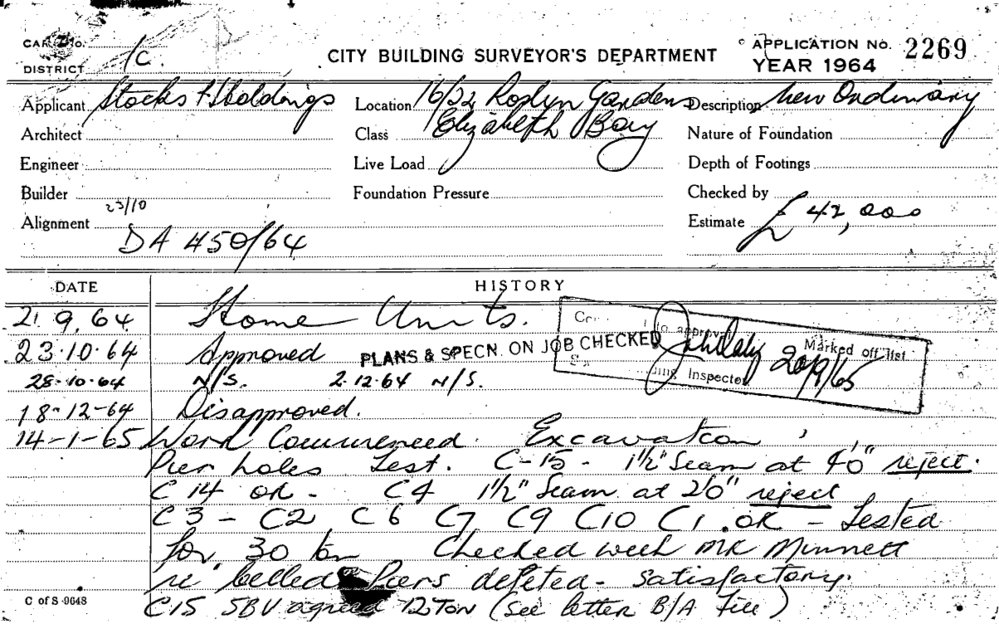 CARD No.
DISTRICT 1C.
CITY BUILDING SURVEYOR'S DEPARTMENT
APPLICATION No. 2269
YEAR 1964
Applicant Stocks & Holdings
Location 16/22 Roslyn Gardens
Elizabeth Bay
Description New Ordinary
Architect
Class
Nature of Foundation
Engineer
Live Load
Depth of Footings
Builder
Foundation Pressure
Checked by
Alignment 23/10
Estimate £ 42,000
DA 450/64
DATE HISTORY
21.9.64 Home Units.
23.10.64 Approved PLANS & SPECN. ON JOB CHECKED
to approv
Marked off list
ing Inspector 20/9/65
28.10.64 N/S. 2.12.64 N/S.
18-12-64 Disapproved.
14-1-65 Work Commenced. Excavation
Pier holes Test. C-15 - 1½" Seam at 4'0" reject.
C 14 OK - C4 1½" Seam at 2'0" reject
C 3 - C2 C 6 C7 C9 C10 C1. OK - Tested
for 30 ton Checked with Mr Minnett
re belled Piers deleted - satisfactory.
C15 SBV agreed 12 TON (see letter B/A File)
C of S 9648